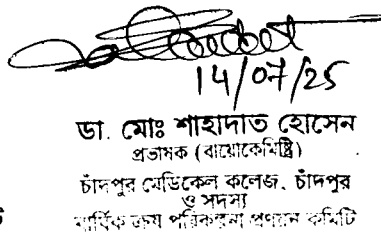 14/07/25
ডা. মোঃ শাহাদাত হোসেন
প্রভাষক (বায়োকেমিষ্ট্রি)
চাঁদপুর মেডিকেল কলেজ, চাঁদপুর
ও সদস্য
বার্ষিক ক্রয় পরিকল্পনা প্রণয়ন কমিটি